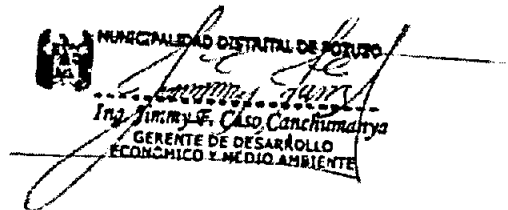 MUNICIPALIDAD DISTRITAL DE POZUZO
Ing. Jimmy F. Caso Canchumanya
GERENTE DE DESARROLLO
ECONOMICO Y MEDIO AMBIENTE